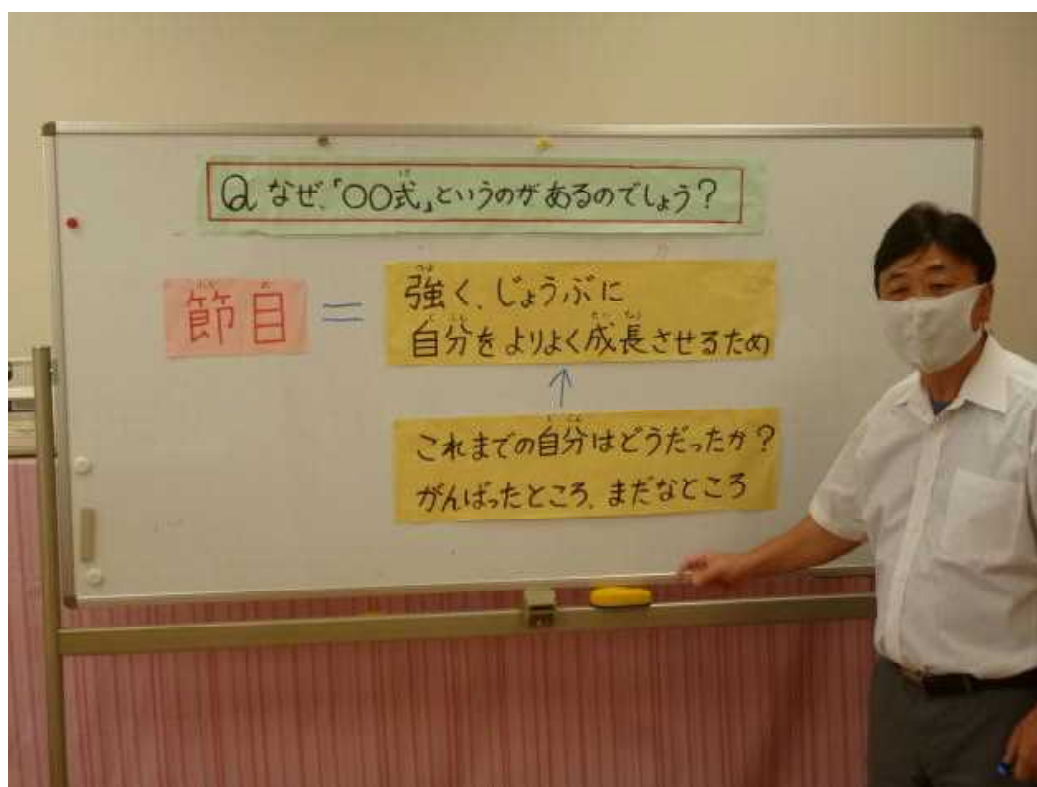 Q. なぜ、「○○式」というのがあるのでしょう？
節目
＝
強く、じょうぶに
自分をよりよく成長させるため
↑
これまでの自分はどうだったか？
がんばったところ、まだなところ